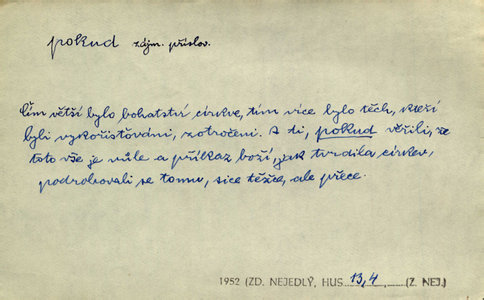 pokud zájm. příslov.
Čím větší bylo bohatství církve, tím více bylo těch, kteří
byli vykořisťováni, zotročeni. A ti, pokud věřili, že
toto vše je vůle a příkaz boží, jak tvrdila církev,
podrobovali se tomu, sice těžce, ale přece.
1952 (ZD. NEJEDLÝ, HUS 13,4 (Z. NEJ.)